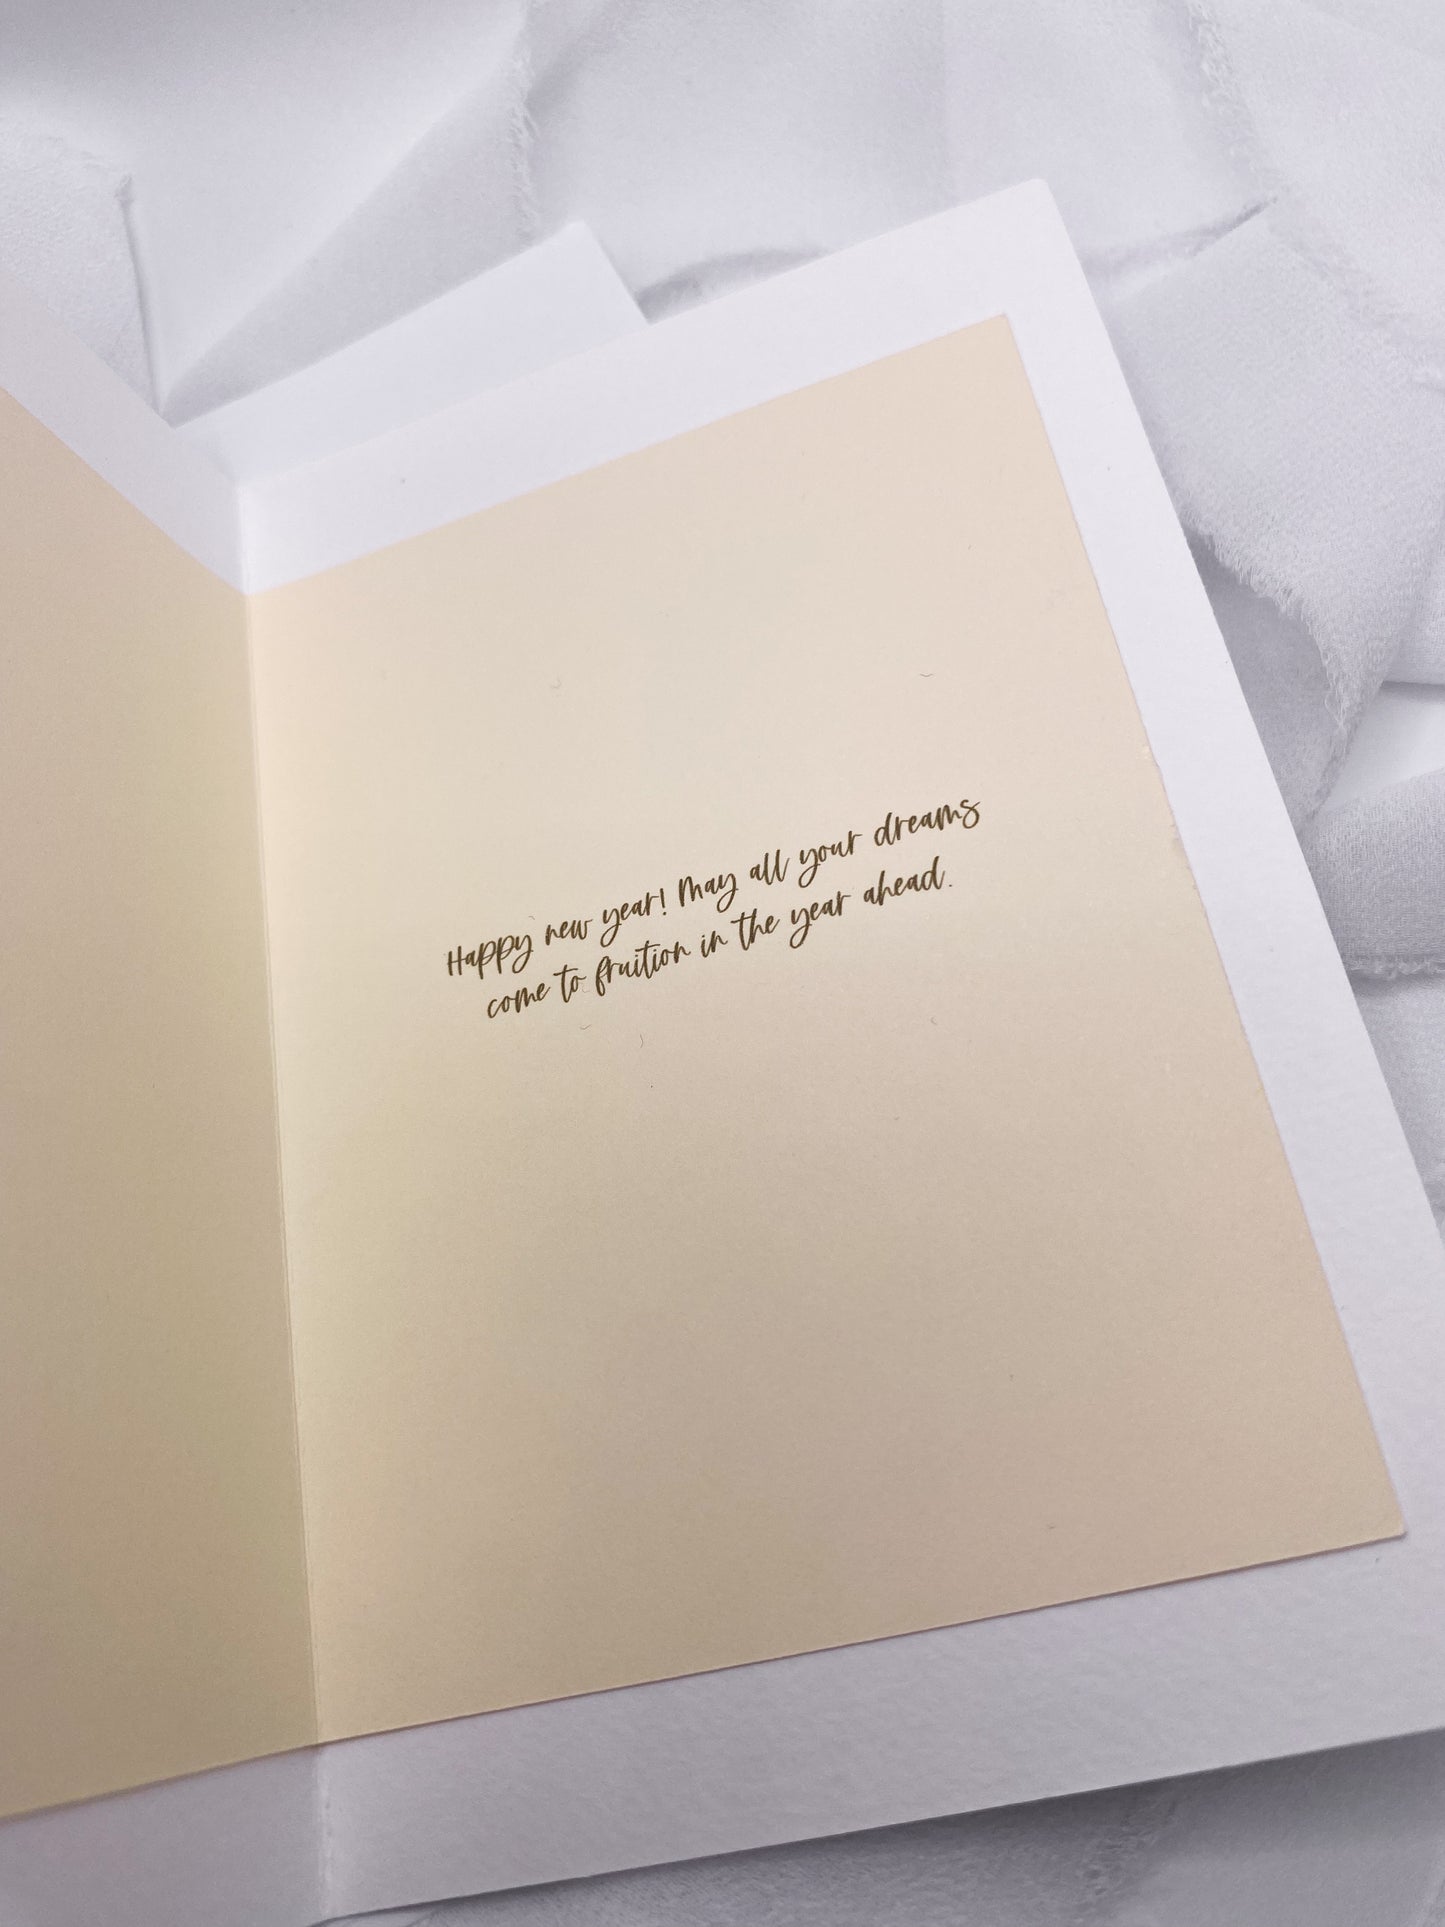 Happy new year! May all your dreams
come to fruition in the year ahead.